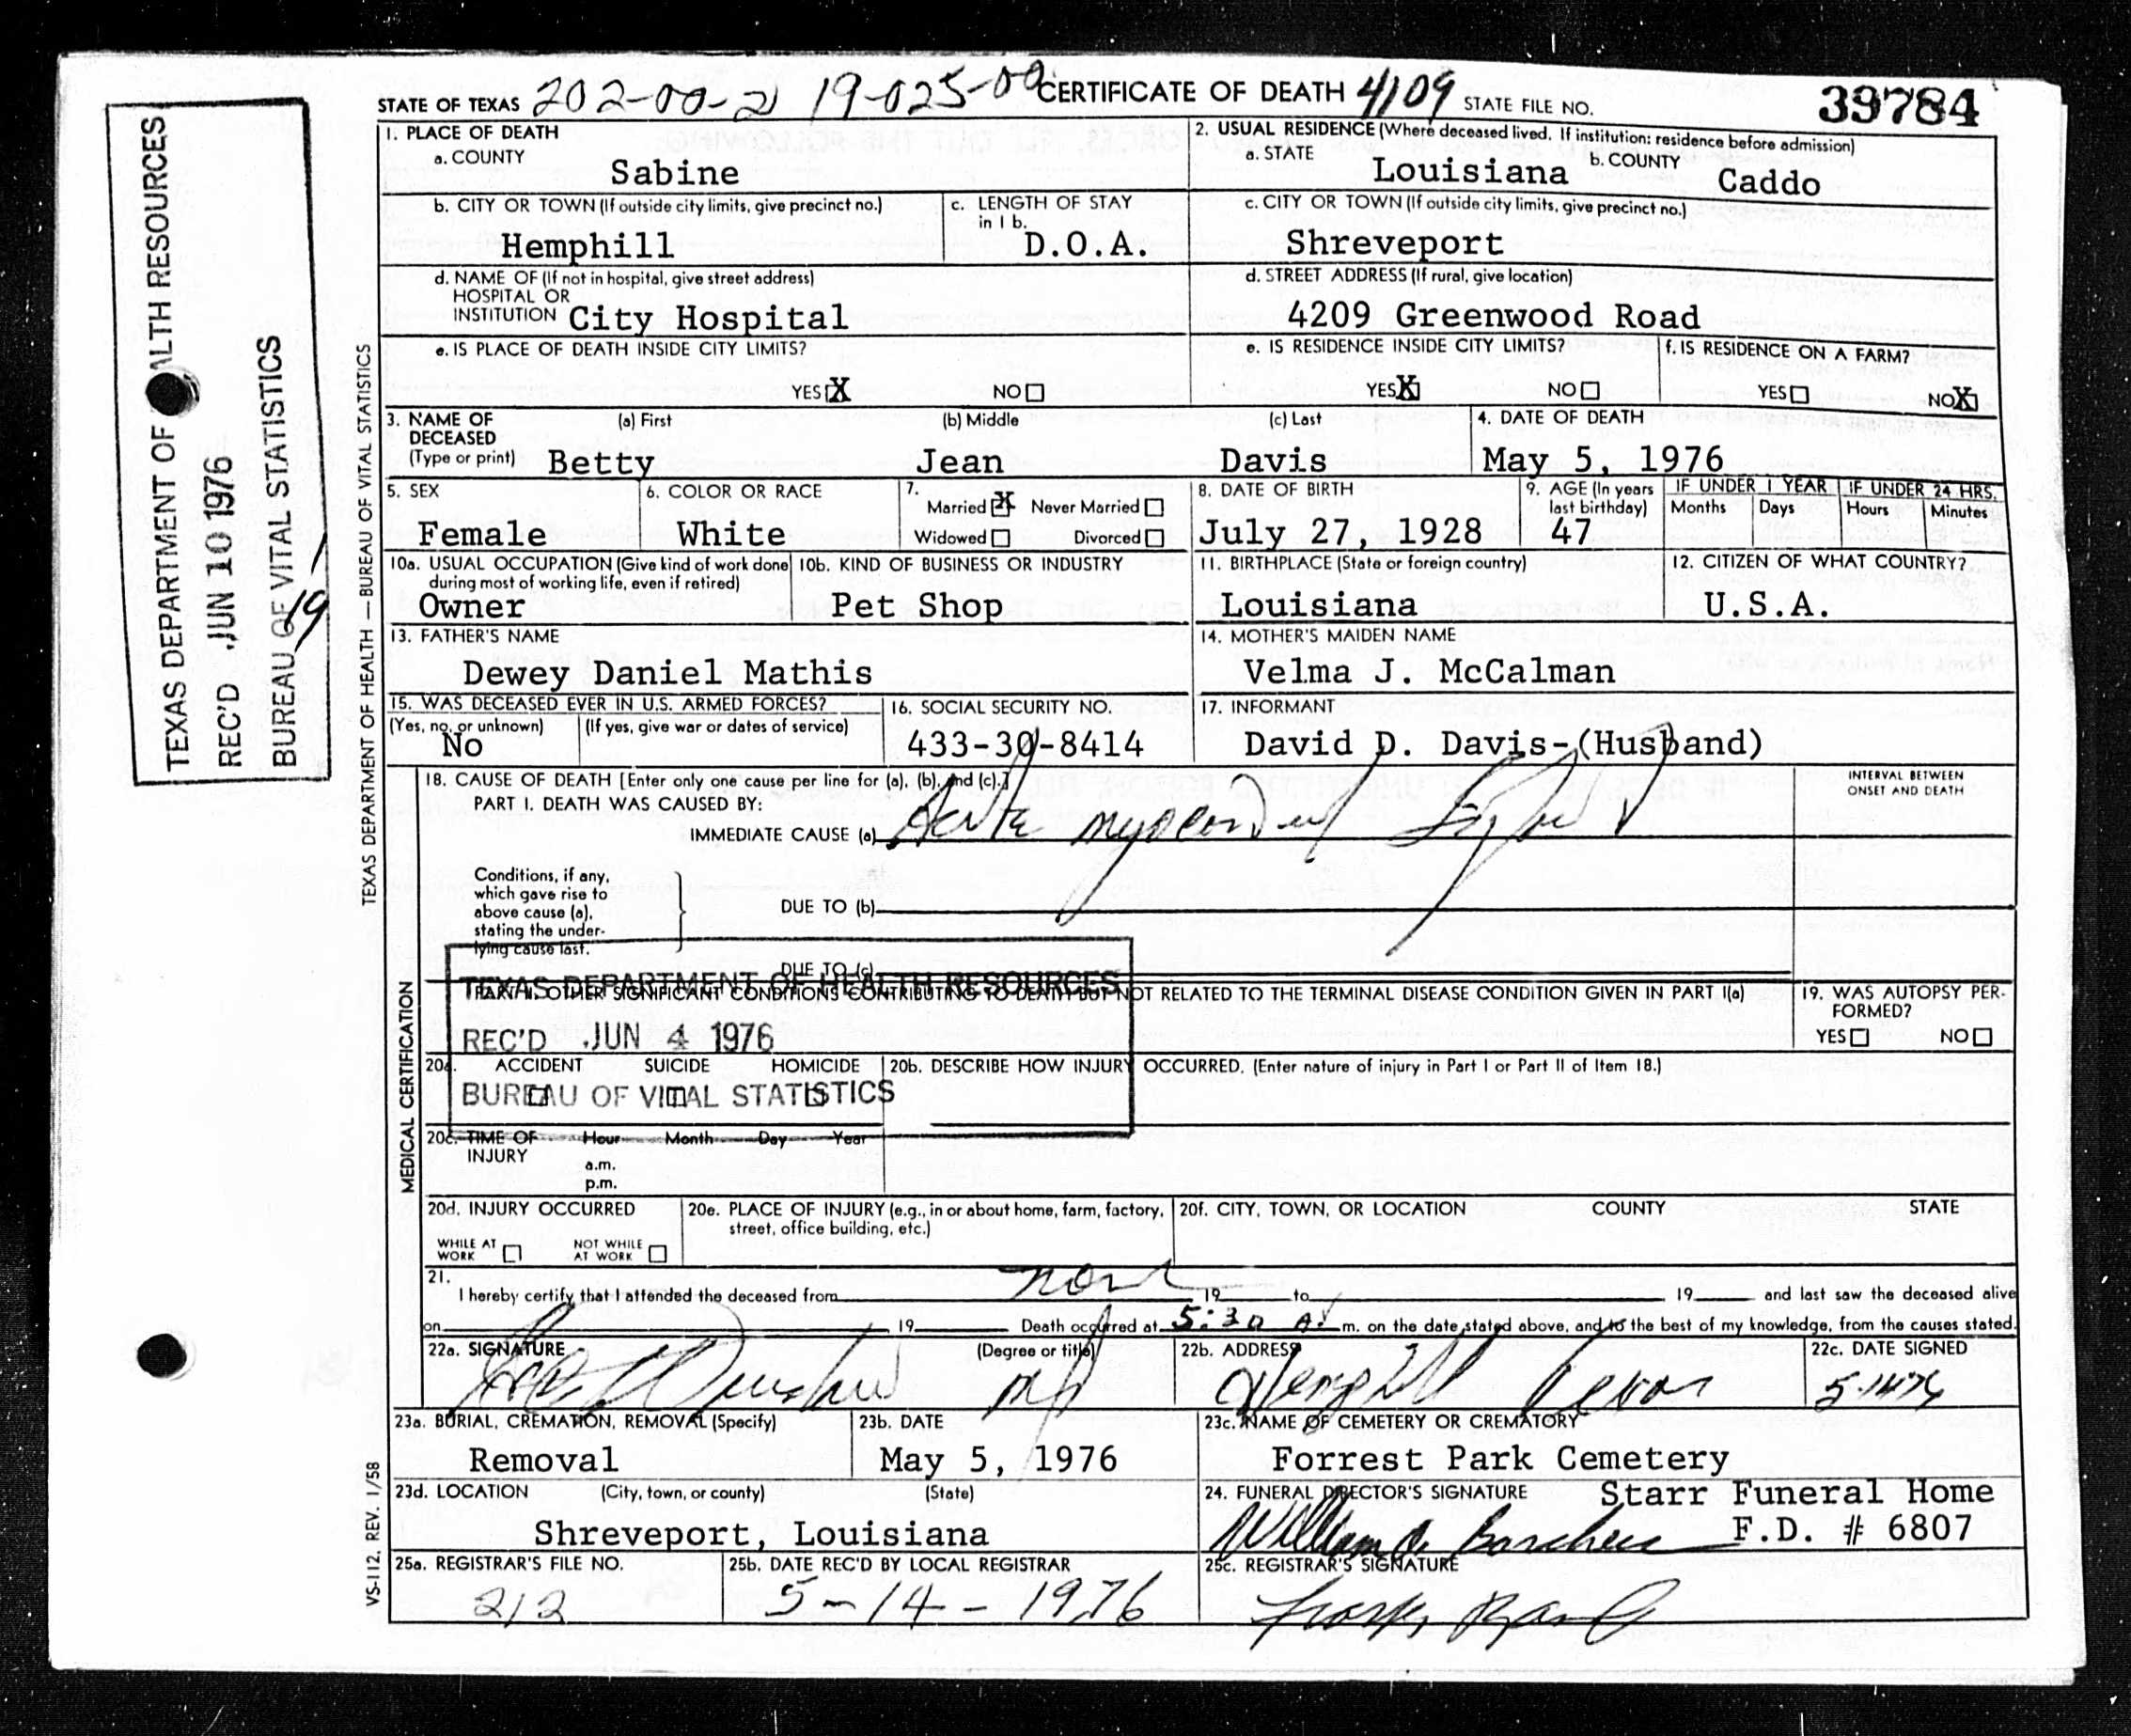 STATE OF TEXAS 202-00-2 19-025-09 CERTIFICATE OF DEATH 4109 STATE FILE NO. 39784
TEXAS DEPARTMENT OF HEALTH RESOURCES
REC'D JUN 10 1976
BUREAU OF VITAL STATISTICS
19
TEXAS DEPARTMENT OF HEALTH — BUREAU OF VITAL STATISTICS
1. PLACE OF DEATH
a. COUNTY
Sabine
2. USUAL RESIDENCE (Where deceased lived. If institution: residence before admission)
a. STATE Louisiana b. COUNTY Caddo
b. CITY OR TOWN (If outside city limits, give precinct no.)
Hemphill
c. LENGTH OF STAY
in 1 b.
D.O.A.
c. CITY OR TOWN (If outside city limits, give precinct no.)
Shreveport
d. NAME OF (If not in hospital, give street address)
HOSPITAL OR
INSTITUTION City Hospital
d. STREET ADDRESS (If rural, give location)
4209 Greenwood Road
e. IS PLACE OF DEATH INSIDE CITY LIMITS?
YES X NO
e. IS RESIDENCE INSIDE CITY LIMITS?
YES X NO
f. IS RESIDENCE ON A FARM?
YES NO X
3. NAME OF
DECEASED
(Type or print)
(a) First (b) Middle (c) Last
Betty Jean Davis
4. DATE OF DEATH
May 5, 1976
5. SEX
Female
6. COLOR OR RACE
White
7.
Married X Never Married
Widowed Divorced
8. DATE OF BIRTH
July 27, 1928
9. AGE (In years
last birthday)
47
IF UNDER 1 YEAR
Months Days
IF UNDER 24 HRS.
Hours Minutes
10a. USUAL OCCUPATION (Give kind of work done
during most of working life, even if retired)
Owner
10b. KIND OF BUSINESS OR INDUSTRY
Pet Shop
11. BIRTHPLACE (State or foreign country)
Louisiana
12. CITIZEN OF WHAT COUNTRY?
U.S.A.
13. FATHER'S NAME
Dewey Daniel Mathis
14. MOTHER'S MAIDEN NAME
Velma J. McCalman
15. WAS DECEASED EVER IN U.S. ARMED FORCES?
(Yes, no, or unknown) (If yes, give war or dates of service)
No
16. SOCIAL SECURITY NO.
433-30-8414
17. INFORMANT
David D. Davis-(Husband)
MEDICAL CERTIFICATION
18. CAUSE OF DEATH [Enter only one cause per line for (a), (b), and (c).]
PART I. DEATH WAS CAUSED BY:
IMMEDIATE CAUSE (a) Acute myocardial
INTERVAL BETWEEN
ONSET AND DEATH
Conditions, if any,
which gave rise to
above cause (a),
stating the under-
lying cause last.
DUE TO (b)
DUE TO (c)
PART II. OTHER SIGNIFICANT CONDITIONS CONTRIBUTING TO DEATH BUT NOT RELATED TO THE TERMINAL DISEASE CONDITION GIVEN IN PART I(a)
TEXAS DEPARTMENT OF HEALTH RESOURCES
REC'D JUN 4 1976
BUREAU OF VITAL STATISTICS
19. WAS AUTOPSY PER-
FORMED?
YES NO
20a. ACCIDENT SUICIDE HOMICIDE
20b. DESCRIBE HOW INJURY OCCURRED. (Enter nature of injury in Part I or Part II of Item 18.)
20c. TIME OF Hour Month Day Year
INJURY
a.m.
p.m.
20d. INJURY OCCURRED
WHILE AT
WORK
NOT WHILE
AT WORK
20e. PLACE OF INJURY (e.g., in or about home, farm, factory,
street, office building, etc.)
20f. CITY, TOWN, OR LOCATION COUNTY STATE
21.
I hereby certify that I attended the deceased from none 19 to 19 and last saw the deceased alive
on 19 Death occurred at 5:30 A. m. on the date stated above, and to the best of my knowledge, from the causes stated.
22a. SIGNATURE (Degree or title)
MD
22b. ADDRESS
Hemphill Texas
22c. DATE SIGNED
5-14-76
23a. BURIAL, CREMATION, REMOVAL (Specify)
Removal
23b. DATE
May 5, 1976
23c. NAME OF CEMETERY OR CREMATORY
Forrest Park Cemetery
23d. LOCATION (City, town, or county) (State)
Shreveport, Louisiana
24. FUNERAL DIRECTOR'S SIGNATURE Starr Funeral Home
William F.D. # 6807
25a. REGISTRAR'S FILE NO.
212
25b. DATE REC'D BY LOCAL REGISTRAR
5-14-1976
25c. REGISTRAR'S SIGNATURE
VS-112, REV. 1/58